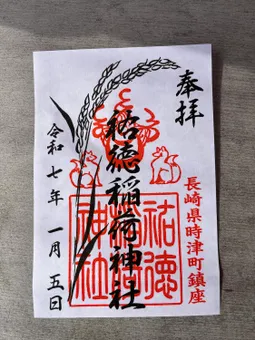 奉拝
長崎県時津町鎮座
祐徳稲荷神社
祐徳
稲荷
神社
令和七年 一月五日